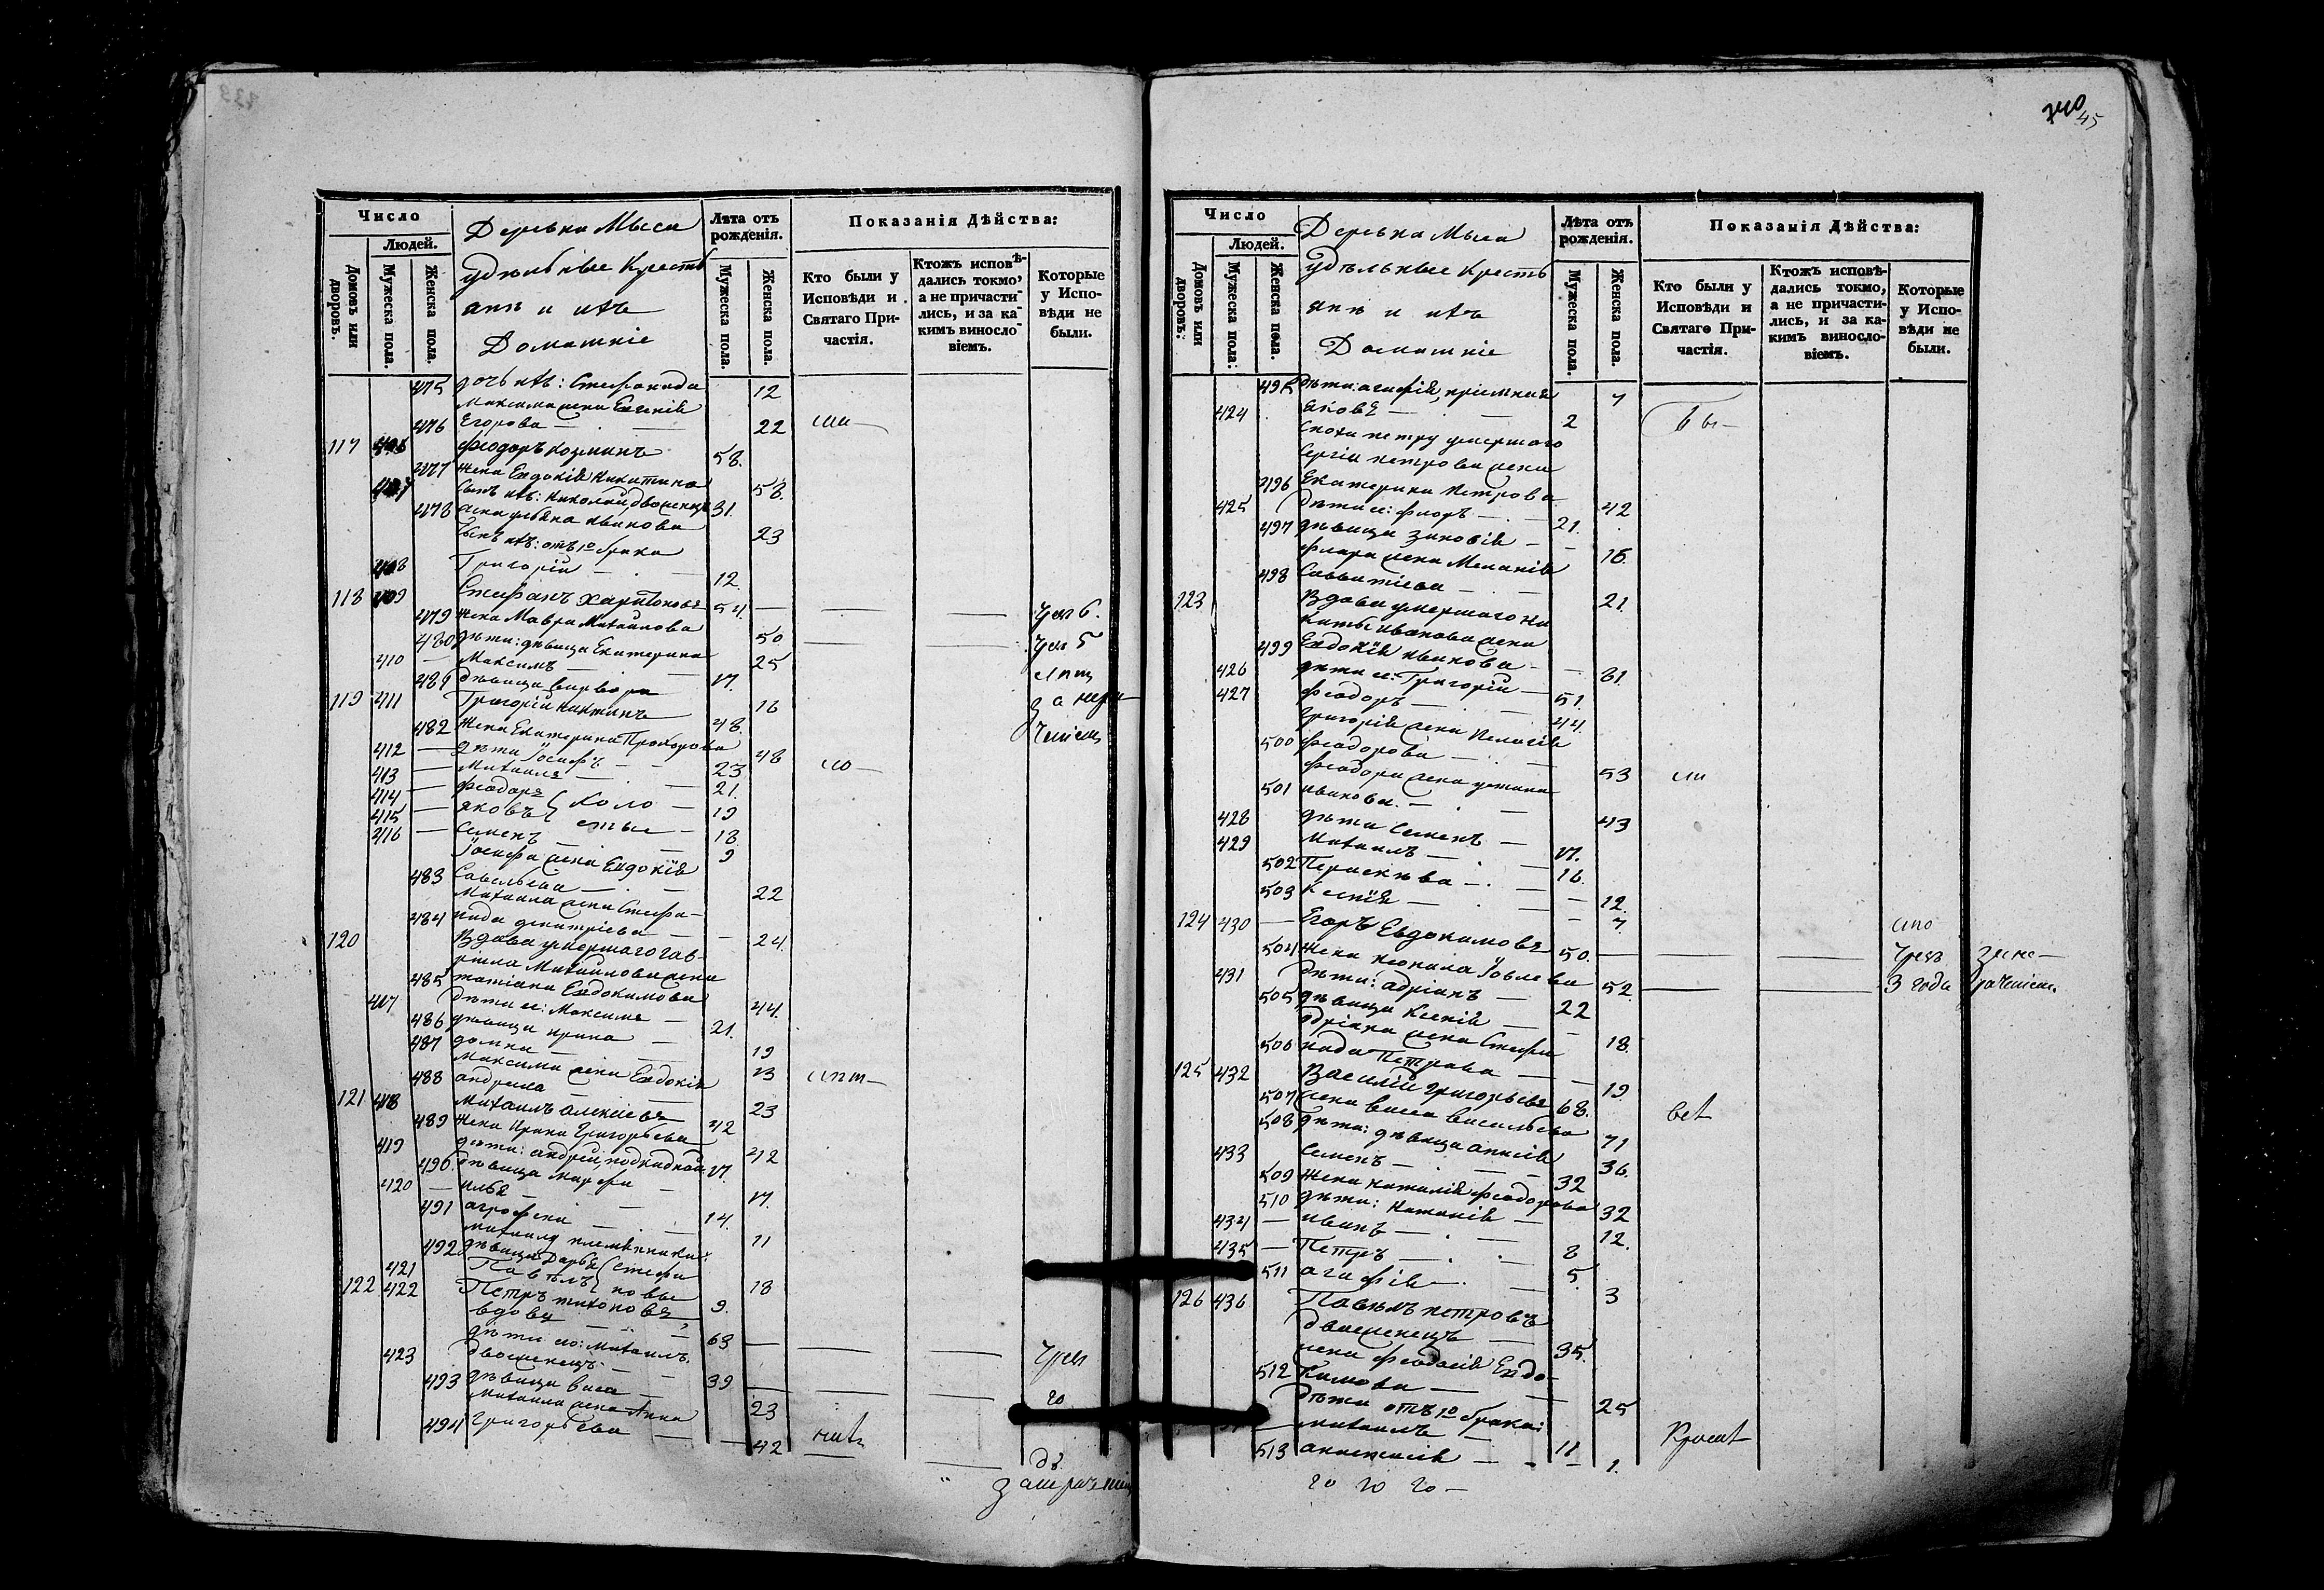 740
45
Число
Людей.
Домовъ или дворовъ.
Мужеска пола.
Женска пола.
Деревна Мыса
удѣльные Кресть
яне и ихъ
Домашніе
Лѣта отъ рожденія.
Мужеска пола.
Женска пола.
Показанія Дѣйства:
Кто были у Исповѣди и Святаго Причастія.
Ктожъ исповѣдались токмо, а не причастились, и за какимъ винословіемъ.
Которые у Исповѣди не были.
475 дочь ихъ: Стефанида 12
Максима жена Евгенія
476 Егорова 22
117 406 Феодоръ Козминъ 58.
477 Жена Евдокія Никитина 58.
407 Сынъ ихъ: Николай, двоженецъ 31.
478 жена ульяна иванова 23
Сынъ ихъ: отъ 1о брака
408 Григорій 12.
118 409 Стефанъ Харитоновъ 54.
479 Жена Мавра Михайлова 50
480 дѣти: дѣвица Екатерина 25
410 Максимъ 17.
481 дѣвица варвара 16
119 411 Григорій никитинъ 48.
482 Жена Екатерина Прохорова 48
412 дѣти Іосифъ 23
413 Михаилъ 21.
414 Феодоръ Холо 19
415 яковъ стые 18
416 Семенъ 9
Іосифа жена Евдокія
483 Савельева 22
Михаила жена Стефа-
484 нида дмитріева 24.
120 Вдова умершаго гав-
ріила Михайлова жена
485 татіана Евдокимова 44.
417 дѣти ее: Максимъ 21.
486 дѣвица ирина 19
487 домна 13
Максима жена Евдокія
488 андреева 23
121 418 Михаилъ алексіевъ 42
489 Жена Ирина Григорьева 42
419 дѣти: андрей, подкидной 17.
490. дѣвица марфа 17.
420 илья 14.
491 агрофена 11
Михаилу племянники:
492 дѣвица Дарья Стефа 18
421 Павелъ новы 9.
122 422 Петръ тихоновъ,
вдовъ 63
дѣти его: Михаилъ,
423 двоженецъ 39
493 дѣвица васа 23
Михаила жена Анна
494 Григорьева 42
Число
Людей.
Домовъ или дворовъ.
Мужеска пола.
Женска пола.
Деревна Мыса
удѣльные Кресть
яне и ихъ
Домашніе
Лѣта отъ рожденія.
Мужеска пола.
Женска пола.
Показанія Дѣйства:
Кто были у Исповѣди и Святаго Причастія.
Ктожъ исповѣдались токмо, а не причастились, и за какимъ винословіемъ.
Которые у Исповѣди не были.
495 дѣти: агафія, пріемная 7
424 яковъ 2
Сноха петру умершаго
Сергія петрова жена
496 Екатерина петрова 42
425 дѣти ее: флоръ 21.
497 дѣвица зиновія 16.
флора жена Меланія
498 Савватіева 21.
123 Вдова умершаго ни
киты иванова жена
499 Евдокія иванова 81.
426 дѣти ее: Григорій 51.
427 феодоръ 44.
Григорія жена Пелагія
500 феодорова 53
феодора жена устина
501 иванова. 43
428 дѣти Семенъ 17.
429 Михаилъ 16.
502 Параскева 12.
503 Ксенія 7.
124 430 Егоръ Евдокимовъ 50.
504 Жена неонила Іовлева 52.
431 дѣти: адріанъ 22
505 дѣвица Ксенія 18.
адріана жена Стефа
506 нида Петрова 19.
125 432 Василій Григорьевъ 68.
507 жена васса васильева 71
508 дѣти: дѣвица анисія 36.
433 Семенъ 32
509 Жена наталія феодорова 32
510 дѣти: наталія 12.
434 иванъ 8
435 Петръ 5.
511 агафія 3
126 436 Павелъ петровъ
двоеженецъ 35.
жена феодосія Евдо-
512 кимова 25
дѣти отъ 1о брака:
михаилъ 11
513 анастасія 1.